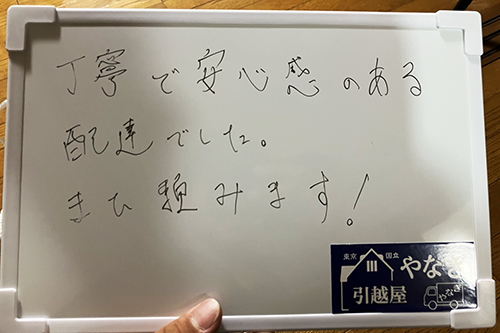 丁寧で安心感のある
配達でした。
またお頼みます!
東京 国立
やなぎ
引越屋
やなぎ